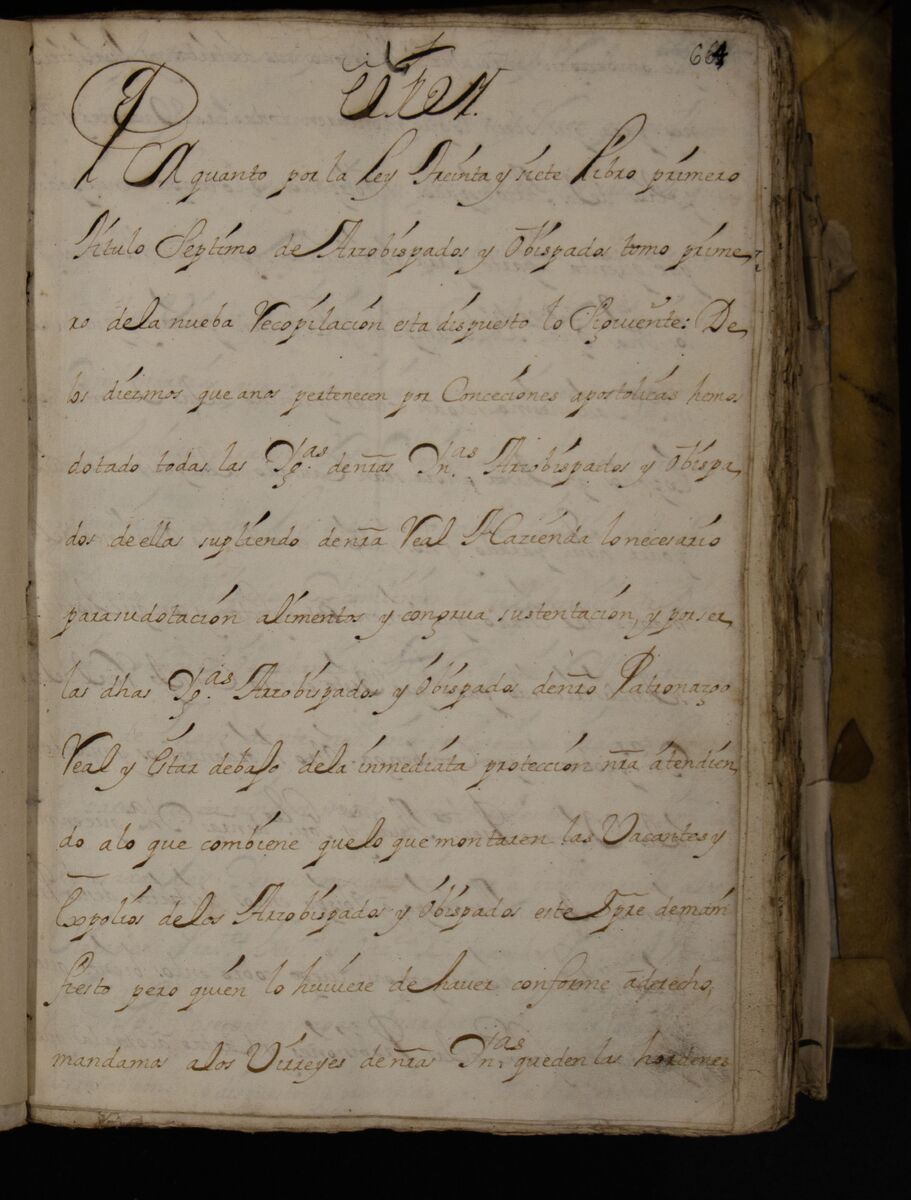 664
EL REY.
En quanto por la Ley Treinta y siete Libro primero
titulo Septimo de Arzobispados y Obispados tomo prime
ro de la nueba Recopilacion esta dispuesto lo Siguiente: De
los diezmos que anos pertenecen por Conceciones apostolicas hemos
dotado todas las Yg.as de nras Yn.as Arzobispados y Obispa
dos de ellas supliendo de nra Real Hazienda lo necesario
para su dotacion alimentos y congrua sustentacion, y por ser
las dhas Yg.as Arzobispados y Obispados de nro Patronazgo
Real y Estar debajo de la inmediata proteccion nra atendien
do alo que combiene que lo que montaren las Vacantes y
Expolios de los Arzobispados y Obispados este Spre de mani
fiesto pero quien lo huviere de haver conforme a derecho,
mandamos a los Virreyes de nras Yn.as que den las hordenes